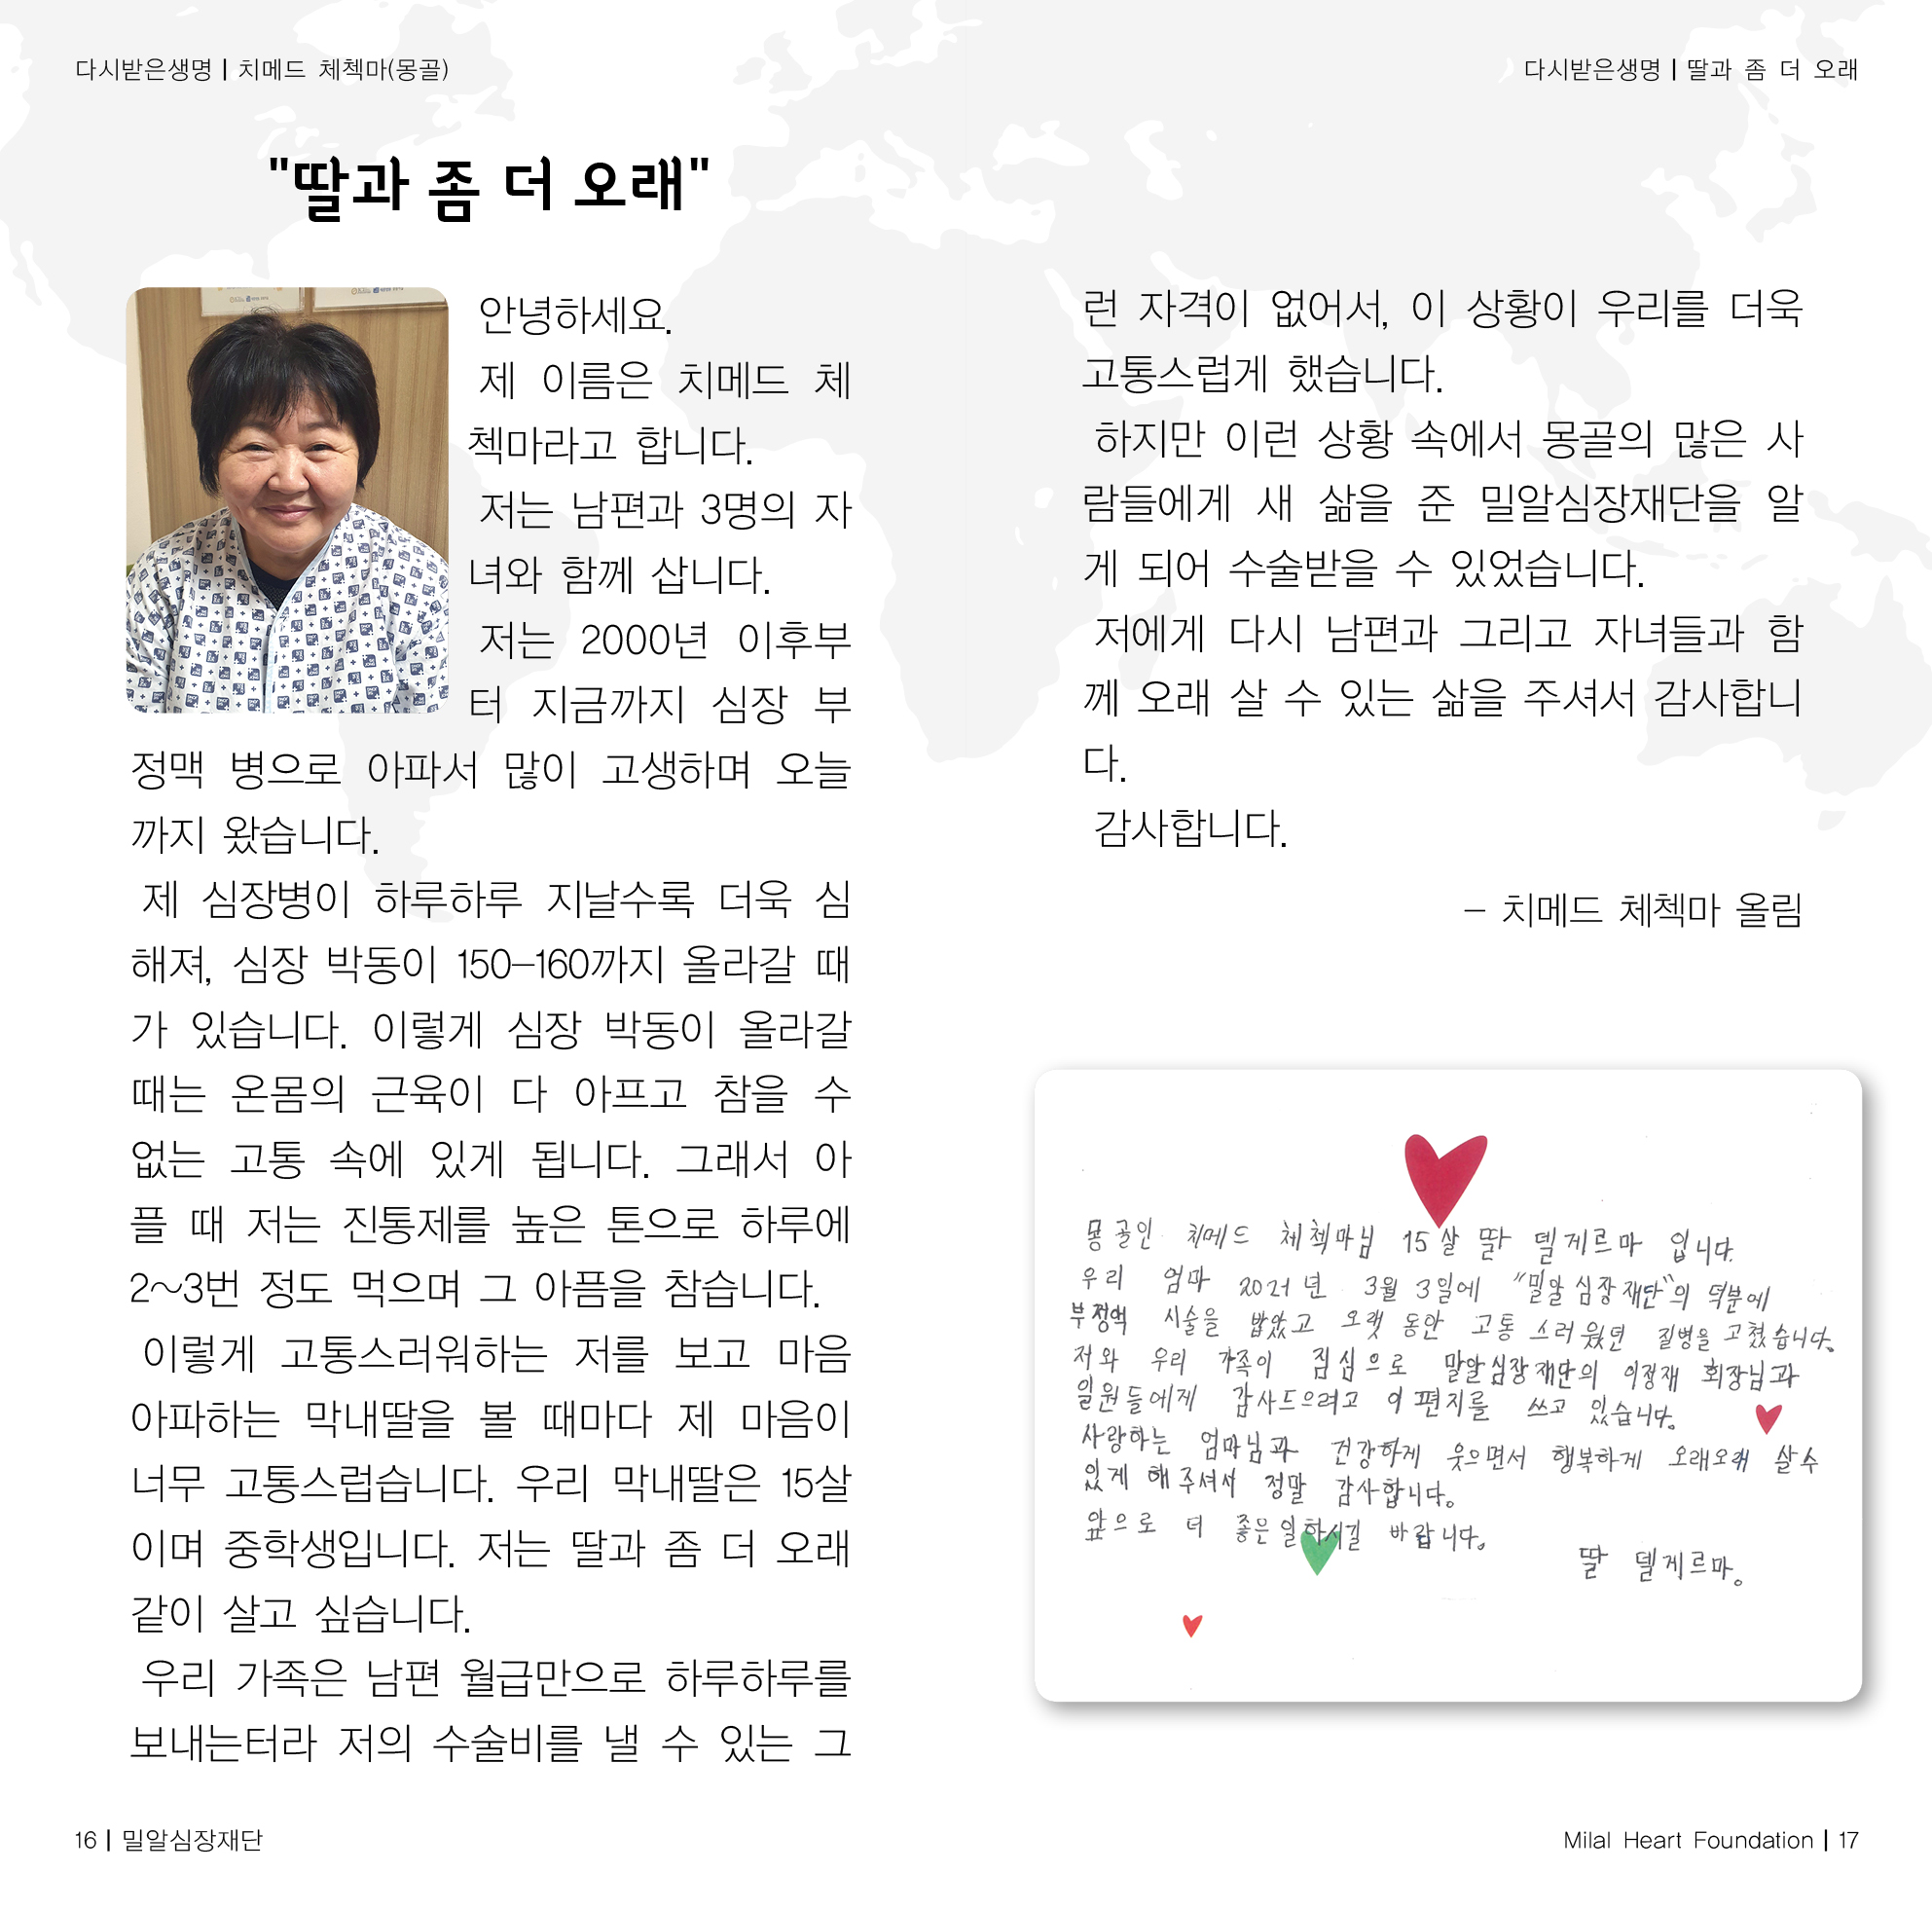 다시받은생명 | 치메드 체첵마(몽골)
"딸과 좀 더 오래"
안녕하세요.
제 이름은 치메드 체
첵마라고 합니다.
저는 남편과 3명의 자
녀와 함께 삽니다.
저는 2000년 이후부
터 지금까지 심장 부
정맥 병으로 아파서 많이 고생하며 오늘
까지 왔습니다.
제 심장병이 하루하루 지날수록 더욱 심
해져, 심장 박동이 150-160까지 올라갈 때
가 있습니다. 이렇게 심장 박동이 올라갈
때는 온몸의 근육이 다 아프고 참을 수
없는 고통 속에 있게 됩니다. 그래서 아
플 때 저는 진통제를 높은 톤으로 하루에
2~3번 정도 먹으며 그 아픔을 참습니다.
이렇게 고통스러워하는 저를 보고 마음
아파하는 막내딸을 볼 때마다 제 마음이
너무 고통스럽습니다. 우리 막내딸은 15살
이며 중학생입니다. 저는 딸과 좀 더 오래
같이 살고 싶습니다.
우리 가족은 남편 월급만으로 하루하루를
보내는터라 저의 수술비를 낼 수 있는 그
16 | 밀알심장재단
다시받은생명 | 딸과 좀 더 오래
런 자격이 없어서, 이 상황이 우리를 더욱
고통스럽게 했습니다.
하지만 이런 상황 속에서 몽골의 많은 사
람들에게 새 삶을 준 밀알심장재단을 알
게 되어 수술받을 수 있었습니다.
저에게 다시 남편과 그리고 자녀들과 함
께 오래 살 수 있는 삶을 주셔서 감사합니
다.
감사합니다.
- 치메드 체첵마 올림
몽골인 치메드 체첵마님 15살 딸 델게르마 입니다.
우리 엄마 2021년 3월 3일에 "밀알심장재단"의 덕분에
부정맥 시술을 받았고 오랫동안 고통스러웠던 질병을 고쳤습니다.
저와 우리 가족이 진심으로 밀알심장재단의 이정재 회장님과
일원들에게 감사드리려고 이 편지를 쓰고 있습니다.
사랑하는 엄마님과 건강하게 웃으면서 행복하게 오래오래 살수
있게 해주셔서 정말 감사합니다.
앞으로 더 좋은일하시길 바랍니다.
딸 델게르마.
Milal Heart Foundation | 17